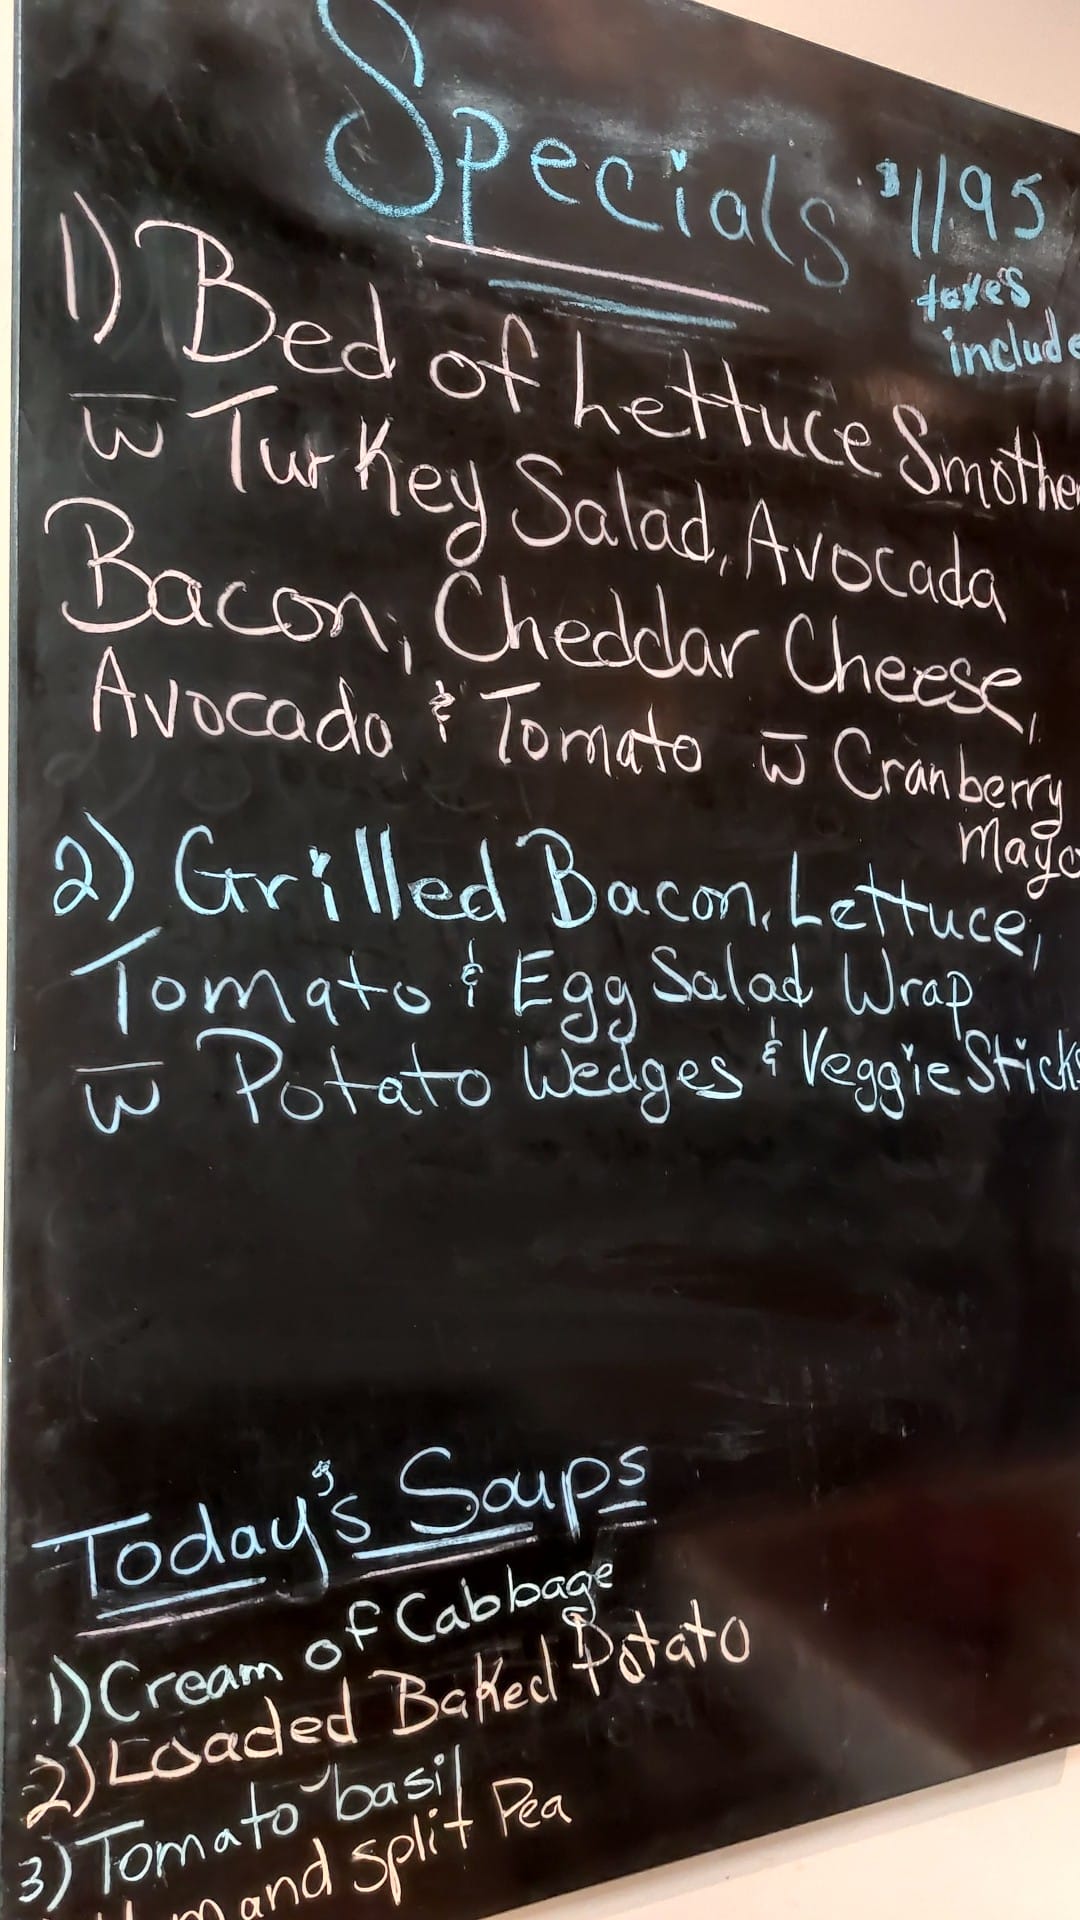 Specials $11.95
taxes
include
1) Bed of Lettuce Smothe
w̅ Turkey Salad, Avocada
Bacon, Cheddar Cheese,
Avocado & Tomato w̅ Cranberry
Mayo
2) Grilled Bacon, Lettuce,
Tomato & Egg Salad Wrap
w̅ Potato Wedges & Veggie Sticks
Today's Soups
1) Cream of Cabbage
2) Loaded Baked Potato
3) Tomato basil
and split Pea